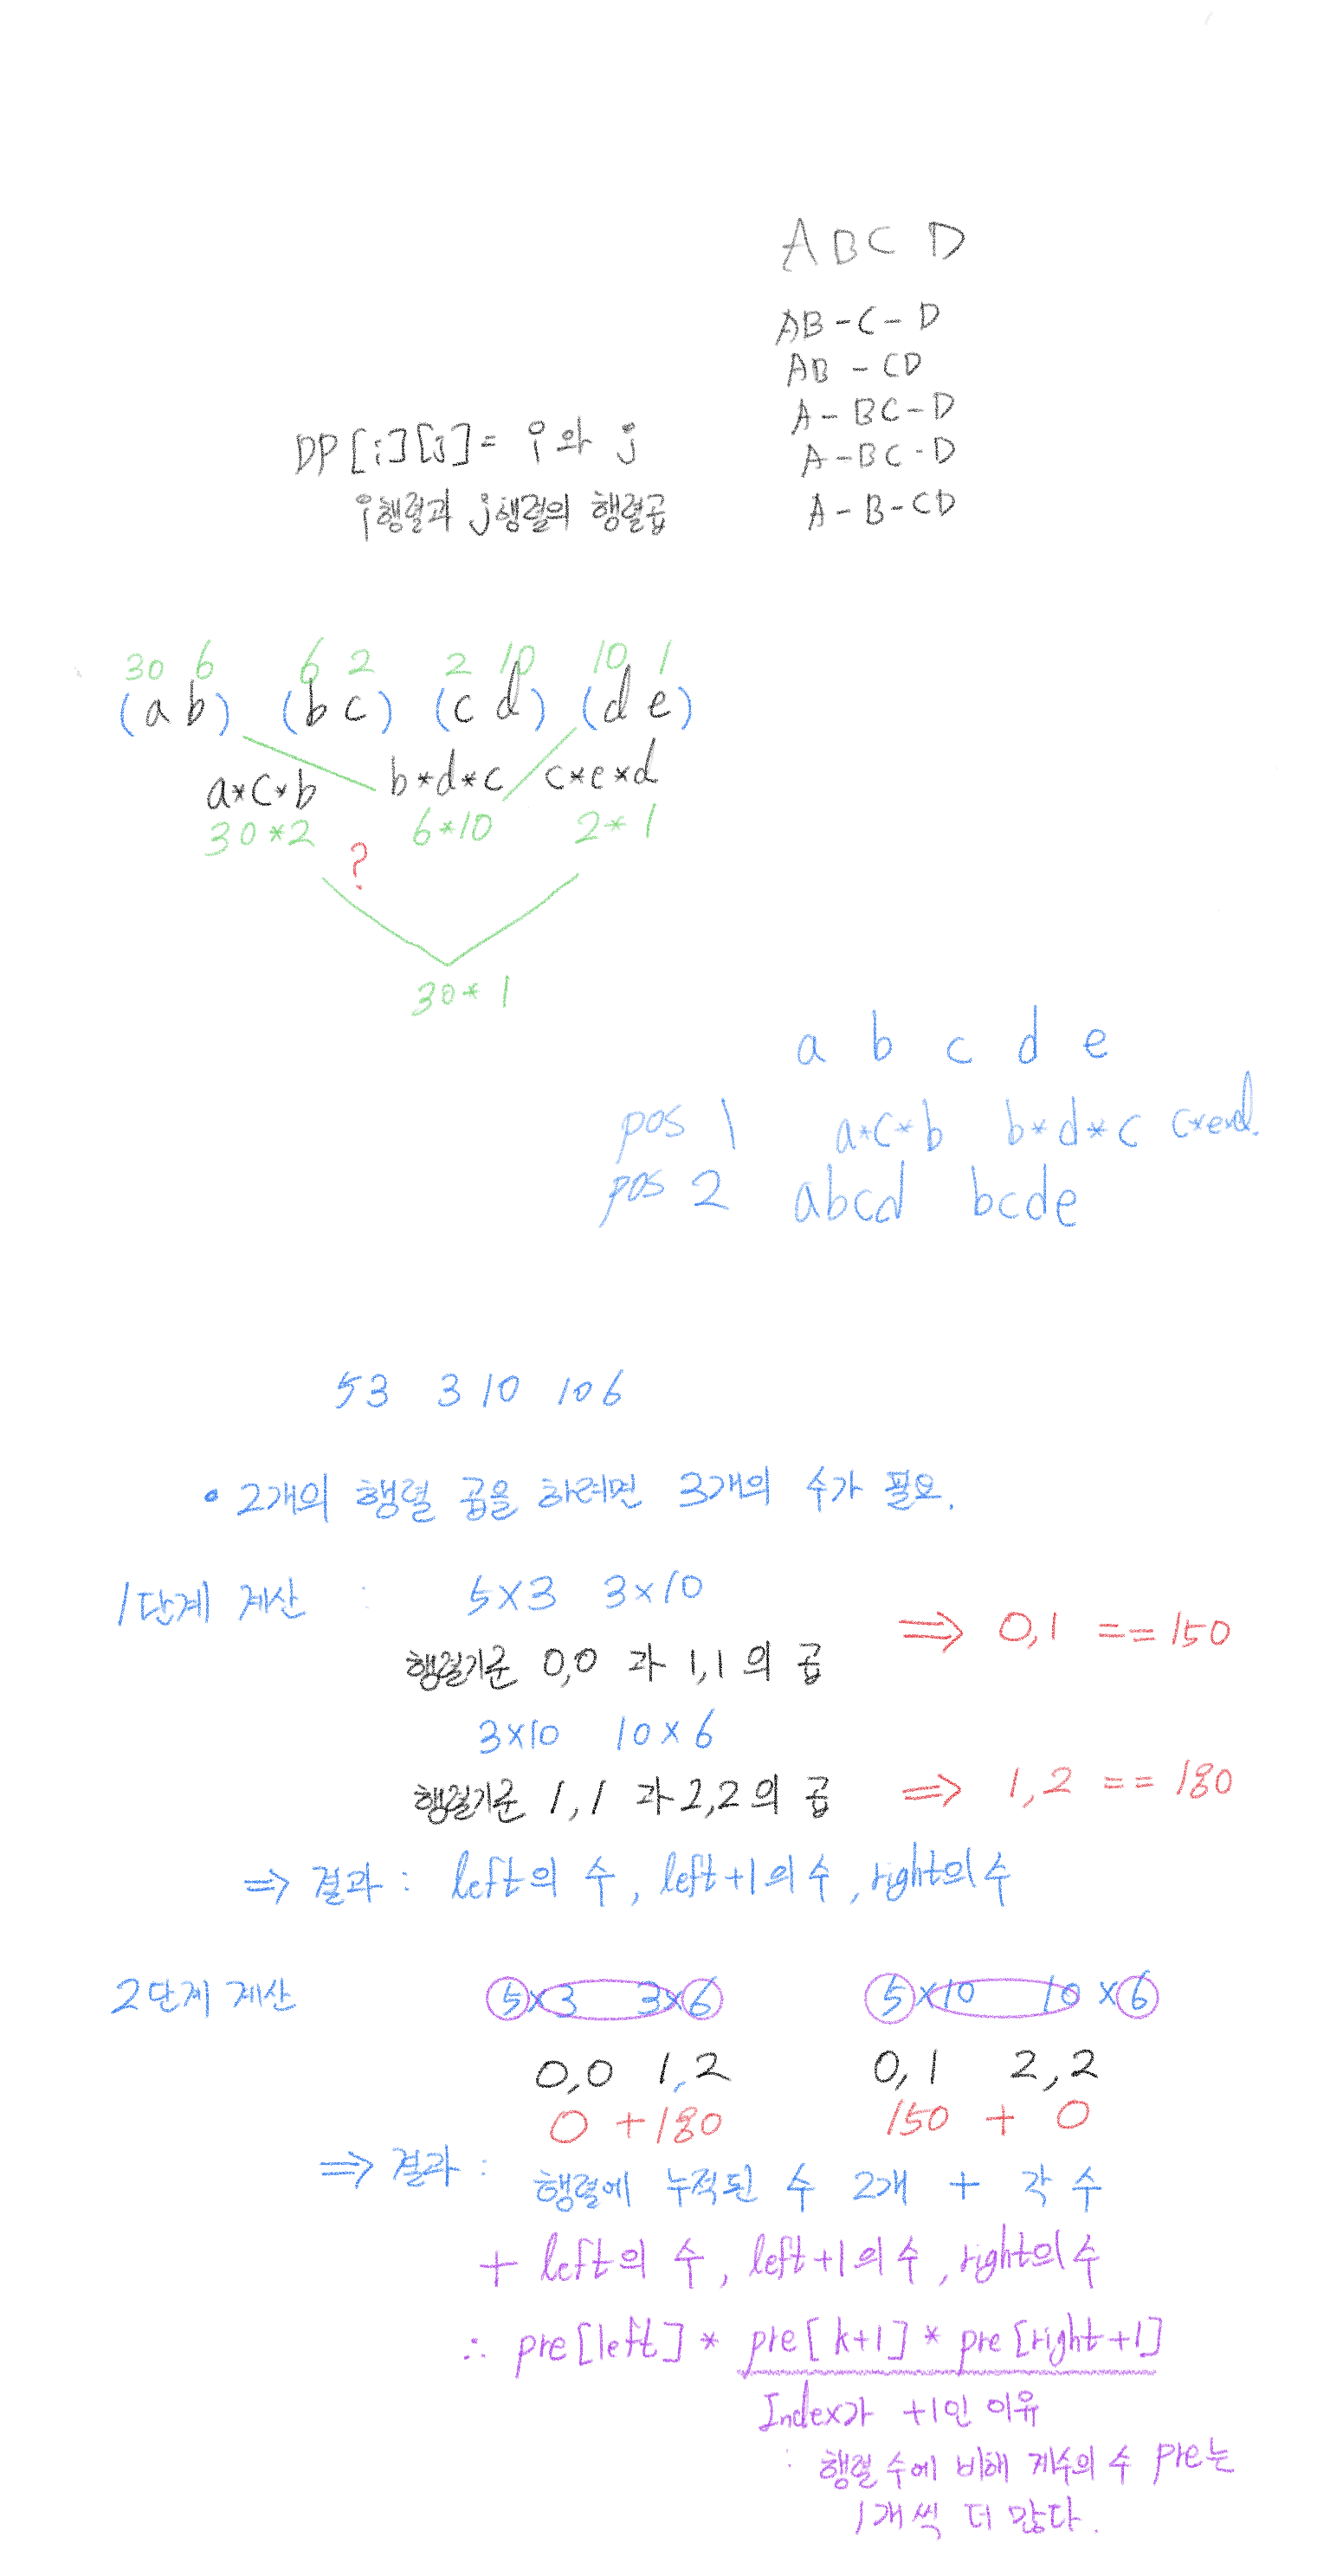 A B C D
AB - C - D
AB - CD
A - BC - D
A - BC - D
A - B - CD
DP[i][j] = i 와 j
i행렬과 j행렬의 행렬곱
30 6 6 2 2 10 10 1
(a b) (b c) (c d) (d e)
a*c*b b*d*c c*e*d
30*2 6*10 2*1
?
30*1
a b c d e
pos 1 a*c*b b*d*c c*e*d.
pos 2 abcd bcde
5 3 3 10 10 6
• 2개의 행렬 곱을 하려면 3개의 수가 필요.
1단계 계산 : 5×3 3×10
⇒ 0,1 == 150
행렬기준 0,0 과 1,1 의 곱
3×10 10×6
행렬기준 1,1 과 2,2 의 곱 ⇒ 1,2 == 180
⇒ 결과 : left의 수, left+1의 수, right의 수
2단계 계산 5×3 3×6 5×10 10×6
0,0 1,2 0,1 2,2
0 + 180 150 + 0
⇒ 결과 : 행렬에 누적된 수 2개 + 각 수
+ left의 수, left+1의 수, right의 수
∴ pre[left] * pre[k+1] * pre[right+1]
Index가 +1인 이유
: 행렬 수에 비해 계수의 수 pre는
1개씩 더 많다.